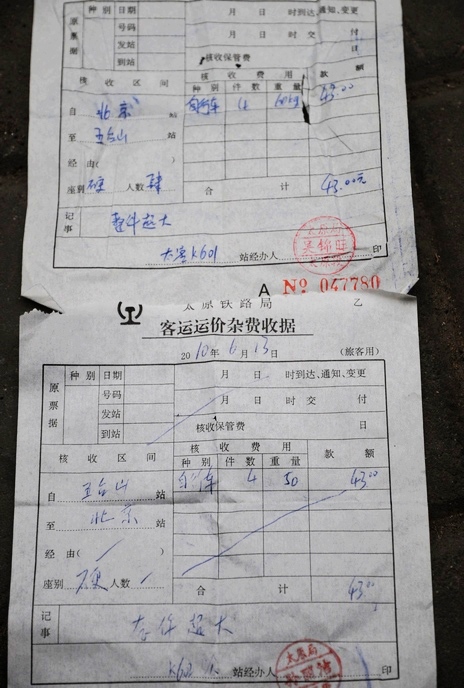 种别 日期 月 日 时到达、通知、变更
原票据 号码 月 日 时交 付
发站 日
到站 核收保管费
核 收 区 间 核 收 费 用 款 额
种别 件数 重量
自 北京 站 自行车 4 60kg 43.00
至 五台山 站
经由(
座别 硬 人数 肆 合 计 43.00元
记事 整件超大
太客K601 站经办人 印
A № 047780
太原铁路局 乙
客运运价杂费收据
2010年6月13日 (旅客用)
种别 日期 月 日 时到达、通知、变更
原票据 号码 月 日 时交 付
发站 日
到站 核收保管费
核 收 区 间 核 收 费 用 款 额
种别 件数 重量
自 五台山 站 自行车 4 50 43.00
至 北京 站
经由(
座别 硬 人数 合 计 43.00
记事 超大
站经办人 印
太原局